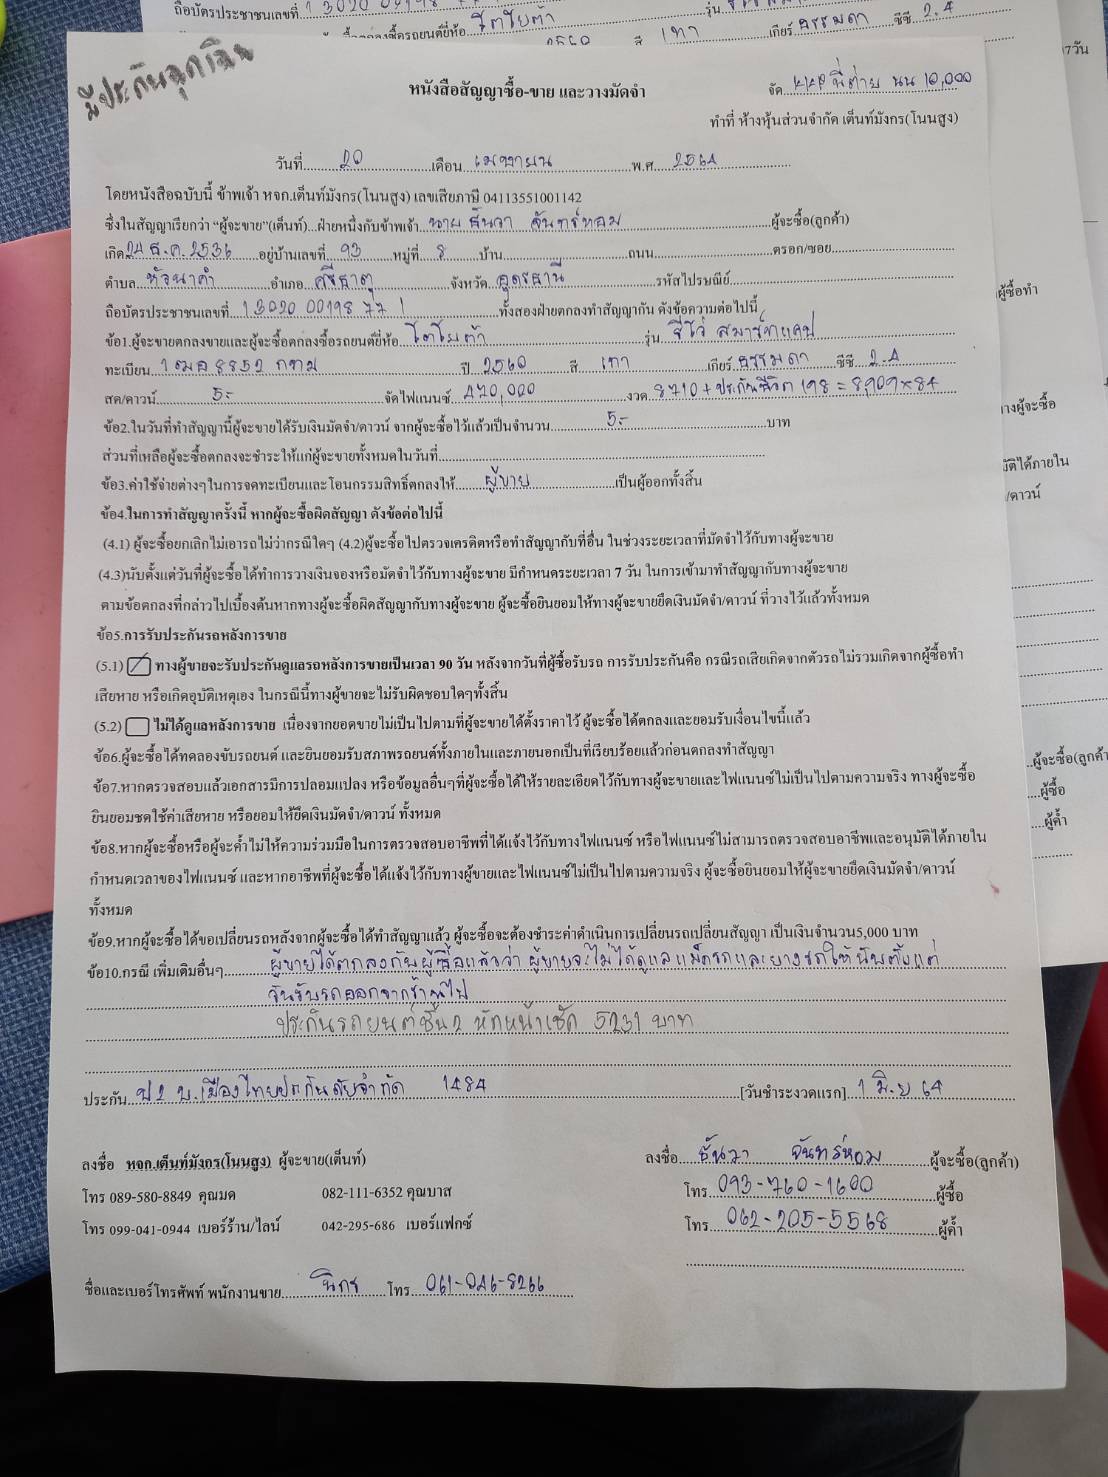 ถือบัตรประชาชนเลขที่ 1 3020 00198 77 รุ่น
ซื้อรถยนต์ยี่ห้อ โตโยต้า เกียร์ ธรรมดา ซีซี 2.4
2560 สี เทา
7วัน
มีประกันฉุกเฉิน
หนังสือสัญญาซื้อ-ขาย และวางมัดจำ
จัด KKP พี่ต่าย นน 10,000
ทำที่ ห้างหุ้นส่วนจำกัด เต็นท์มังกร(โนนสูง)
วันที่ 20 เดือน เมษายน พ.ศ. 2564
โดยหนังสือฉบับนี้ ข้าพเจ้า หจก.เต็นท์มังกร(โนนสูง) เลขเสียภาษี 04113551001142
ซึ่งในสัญญาเรียกว่า "ผู้จะขาย"(เต็นท์)...ฝ่ายหนึ่งกับข้าพเจ้า นาย ธันวา จันทร์หอม ผู้จะซื้อ(ลูกค้า)
เกิด 24 ธ.ค. 2536 อยู่บ้านเลขที่ 93 หมู่ที่ 8 บ้าน ถนน ตรอก/ซอย
ตำบล หัวนาคำ อำเภอ ศรีธาตุ จังหวัด อุดรธานี รหัสไปรษณีย์
ถือบัตรประชาชนเลขที่ 1 3020 00198 77 1 ทั้งสองฝ่ายตกลงทำสัญญากัน ดังข้อความต่อไปนี้
ข้อ1.ผู้จะขายตกลงขายและผู้จะซื้อตกลงซื้อรถยนต์ยี่ห้อ โตโยต้า รุ่น รีโว่ สมาร์ทแคป
ทะเบียน 1ฒล 8852 กทม ปี 2560 สี เทา เกียร์ ธรรมดา ซีซี 2.4
สด/ดาวน์ 5.- จัดไฟแนนซ์ 470,000 งวด 8710 + ประกันชีวิต 198 = 8,909 x 84
ข้อ2.ในวันที่ทำสัญญานี้ผู้จะขายได้รับเงินมัดจำ/ดาวน์ จากผู้จะซื้อไว้แล้วเป็นจำนวน 5.- บาท
ส่วนที่เหลือผู้จะซื้อตกลงจะชำระให้แก่ผู้จะขายทั้งหมดในวันที่
ข้อ3.ค่าใช้จ่ายต่างๆในการจดทะเบียนและโอนกรรมสิทธิ์ตกลงให้ ผู้ขาย เป็นผู้ออกทั้งสิ้น
ข้อ4.ในการทำสัญญาครั้งนี้ หากผู้จะซื้อผิดสัญญา ดังข้อต่อไปนี้
(4.1) ผู้จะซื้อยกเลิกไม่เอารถไม่ว่ากรณีใดๆ (4.2)ผู้จะซื้อไปตรวจเครดิตหรือทำสัญญากับที่อื่น ในช่วงระยะเวลาที่มัดจำไว้กับทางผู้จะขาย
(4.3)นับตั้งแต่วันที่ผู้จะซื้อได้ทำการวางเงินจองหรือมัดจำไว้กับทางผู้จะขาย มีกำหนดระยะเวลา 7 วัน ในการเข้ามาทำสัญญากับทางผู้จะขาย
ตามข้อตกลงที่กล่าวไปเบื้องต้นหากทางผู้จะซื้อผิดสัญญากับทางผู้จะขาย ผู้จะซื้อยินยอมให้ทางผู้จะขายยึดเงินมัดจำ/ดาวน์ ที่วางไว้แล้วทั้งหมด
ข้อ5.การรับประกันรถหลังการขาย
(5.1) ทางผู้ขายจะรับประกันดูแลรถหลังการขายเป็นเวลา 90 วัน หลังจากวันที่ผู้ซื้อรับรถ การรับประกันคือ กรณีรถเสียเกิดจากตัวรถไม่รวมเกิดจากผู้ซื้อทำ
เสียหาย หรือเกิดอุบัติเหตุเอง ในกรณีนี้ทางผู้ขายจะไม่รับผิดชอบใดๆทั้งสิ้น
(5.2) ไม่ได้ดูแลหลังการขาย เนื่องจากยอดขายไม่เป็นไปตามที่ผู้จะขายได้ตั้งราคาไว้ ผู้จะซื้อได้ตกลงและยอมรับเงื่อนไขนี้แล้ว
ข้อ6.ผู้จะซื้อได้ทดลองขับรถยนต์ และยินยอมรับสภาพรถยนต์ทั้งภายในและภายนอกเป็นที่เรียบร้อยแล้วก่อนตกลงทำสัญญา
ข้อ7.หากตรวจสอบแล้วเอกสารมีการปลอมแปลง หรือข้อมูลอื่นๆที่ผู้จะซื้อได้ให้รายละเอียดไว้กับทางผู้จะขายและไฟแนนซ์ไม่เป็นไปตามความจริง ทางผู้จะซื้อ
ยินยอมชดใช้ค่าเสียหาย หรือยอมให้ยึดเงินมัดจำ/ดาวน์ ทั้งหมด
ข้อ8.หากผู้จะซื้อหรือผู้จะค้ำไม่ให้ความร่วมมือในการตรวจสอบอาชีพที่ได้แจ้งไว้กับทางไฟแนนซ์ หรือไฟแนนซ์ไม่สามารถตรวจสอบอาชีพและอนุมัติได้ภายใน
กำหนดเวลาของไฟแนนซ์ และหากอาชีพที่ผู้จะซื้อได้แจ้งไว้กับทางผู้ขายและไฟแนนซ์ไม่เป็นไปตามความจริง ผู้จะซื้อยินยอมให้ผู้จะขายยึดเงินมัดจำ/ดาวน์
ทั้งหมด
ข้อ9.หากผู้จะซื้อได้ขอเปลี่ยนรถหลังจากผู้จะซื้อได้ทำสัญญาแล้ว ผู้จะซื้อจะต้องชำระค่าดำเนินการเปลี่ยนรถเปลี่ยนสัญญา เป็นเงินจำนวน5,000 บาท
ข้อ10.กรณี เพิ่มเติมอื่นๆ ผู้ขายได้ตกลงกับผู้ซื้อแล้วว่า ผู้ขายจะไม่ได้ดูแลแม็กรถและยางรถให้นับตั้งแต่
วันรับรถออกจากร้านไป
ประกันรถยนต์ชั้น2 หักหน้าเช็ค 5231 บาท
ประกัน ป2 บ.เมืองไทยประกันภัยจำกัด 1484 [วันชำระงวดแรก] 1 มิ.ย 64
ลงชื่อ หจก.เต็นท์มังกร(โนนสูง) ผู้จะขาย(เต็นท์) ลงชื่อ ธันวา จันทร์หอม ผู้จะซื้อ(ลูกค้า)
โทร 089-580-8849 คุณมด 082-111-6352 คุณบาส โทร 093-760-1600 ผู้ซื้อ
โทร 099-041-0944 เบอร์ร้าน/ไลน์ 042-295-686 เบอร์แฟกซ์ โทร 062-205-5568 ผู้ค้ำ
ชื่อและเบอร์โทรศัพท์ พนักงานขาย นิกร โทร 061-046-8266
ผู้ซื้อทำ
ทางผู้จะซื้อ
มัติได้ภายใน
/ดาวน์
ผู้จะซื้อ(ลูกค้า
ผู้ซื้อ
ผู้ค้ำ